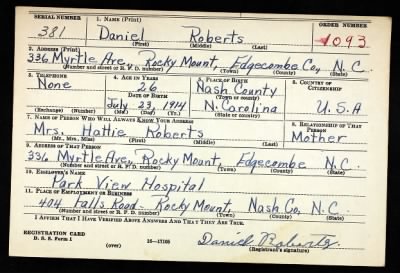 SERIAL NUMBER 1. NAME (Print) ORDER NUMBER
381 Daniel Roberts 1093
(First) (Middle) (Last)
2. ADDRESS (Print)
336 Myrtle Ave, Rocky Mount, Edgecombe Co, N.C.
(Number and street or R. F. D. number) (Town) (County) (State)
3. TELEPHONE 4. AGE IN YEARS 5. PLACE OF BIRTH 6. COUNTRY OF CITIZENSHIP
None 26 Nash County
DATE OF BIRTH (Town or county)
July 23, 1914 N. Carolina U.S.A
(Exchange) (Number) (Mo.) (Day) (Yr.) (State or country)
7. NAME OF PERSON WHO WILL ALWAYS KNOW YOUR ADDRESS 8. RELATIONSHIP OF THAT PERSON
Mrs. Hattie Roberts Mother
(Mr., Mrs., Miss) (First) (Middle) (Last)
9. ADDRESS OF THAT PERSON
336 Myrtle Ave, Rocky Mount, Edgecombe N.C.
(Number and street or R. F. D. number) (Town) (County) (State)
10. EMPLOYER'S NAME
Park View Hospital
11. PLACE OF EMPLOYMENT OR BUSINESS
404 Falls Road - Rocky Mount, Nash Co, N.C.
(Number and street or R. F. D. number) (Town) (County) (State)
I AFFIRM THAT I HAVE VERIFIED ABOVE ANSWERS AND THAT THEY ARE TRUE.
REGISTRATION CARD
D. S. S. Form 1 (over) 16—17105 Daniel Roberts
(Registrant's signature)